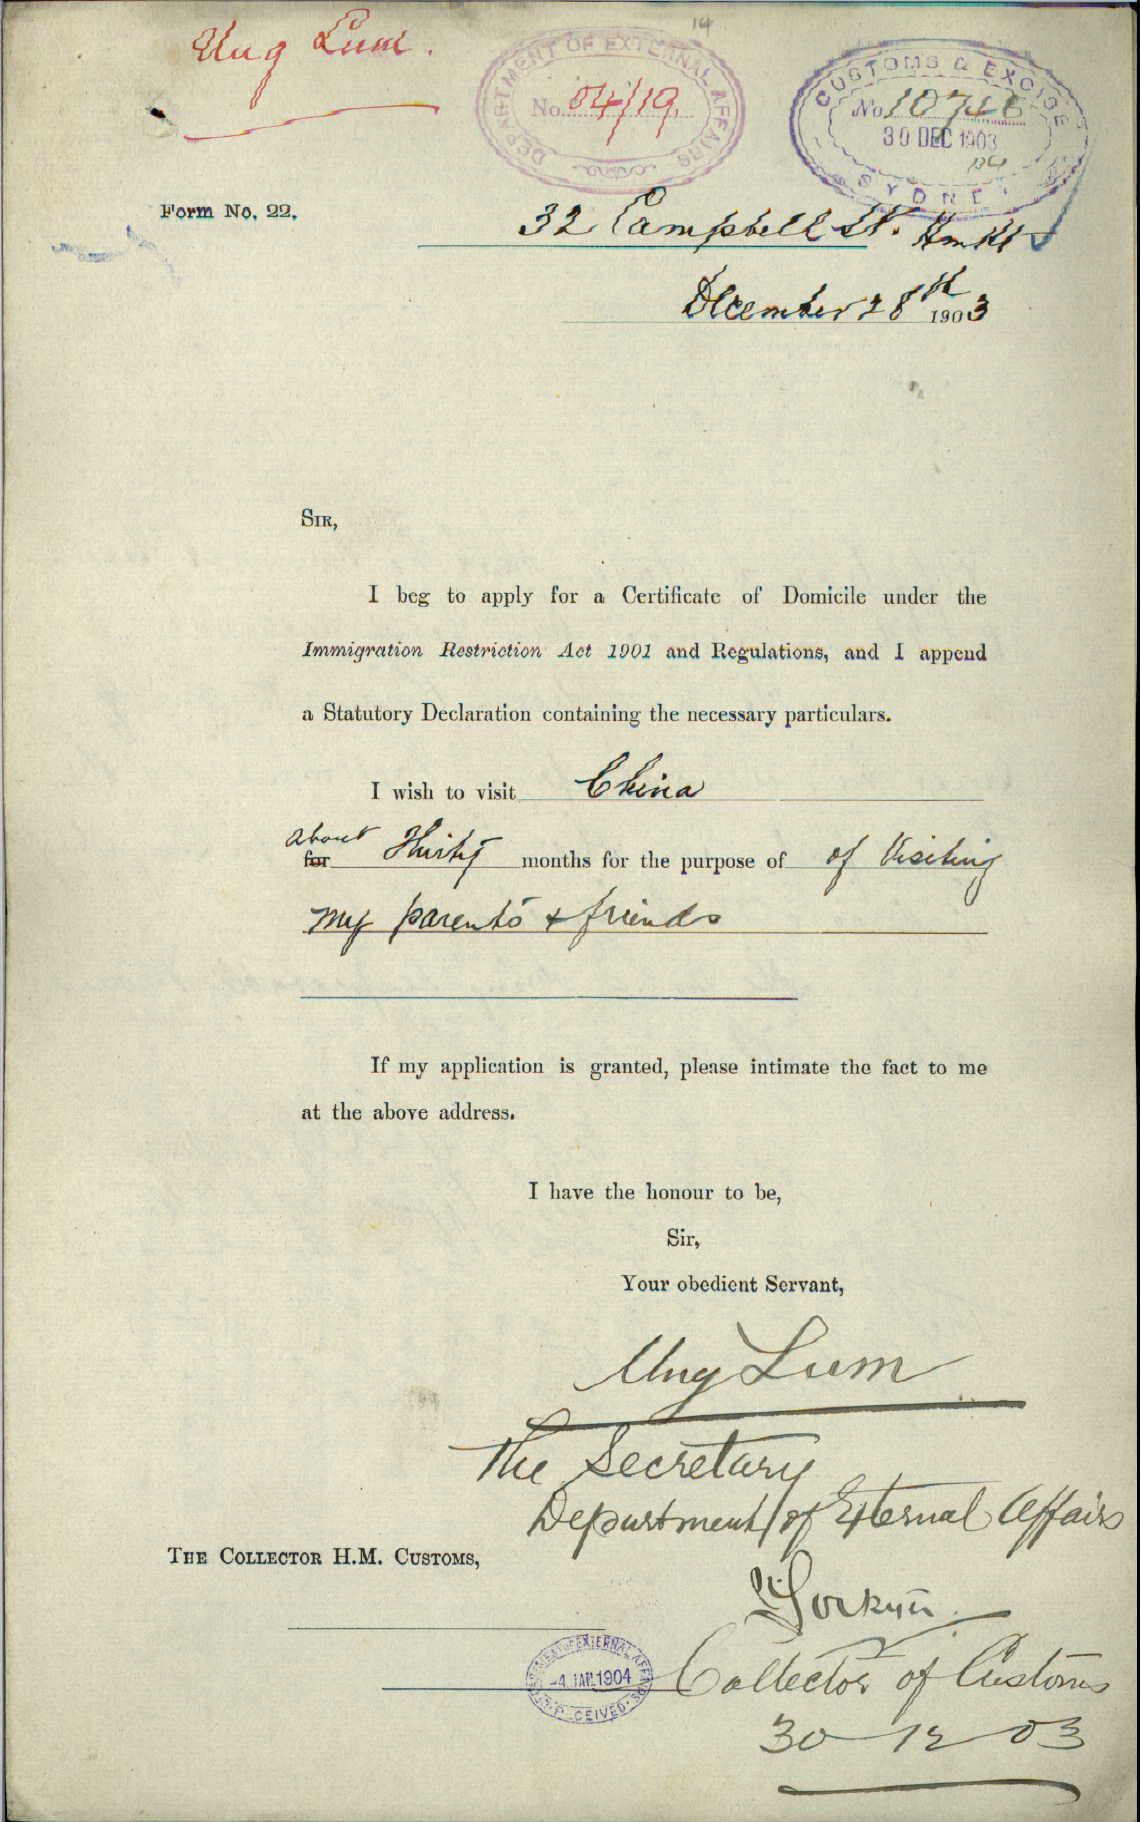 14
Ung Lum.
DEPARTMENT OF EXTERNAL AFFAIRS
No. 04/19.
CUSTOMS & EXCISE
No 10746
30 DEC 1903
SYDNEY
Form No. 22.
32 Campbell St. Hmkt
December 28th 1903
SIR,
I beg to apply for a Certificate of Domicile under the
Immigration Restriction Act 1901 and Regulations, and I append
a Statutory Declaration containing the necessary particulars.
I wish to visit China
About
for Thirty months for the purpose of of Visiting
my parents & friends
If my application is granted, please intimate the fact to me
at the above address.
I have the honour to be,
Sir,
Your obedient Servant,
Ung Lum
The Secretary
Department of External Affairs
THE COLLECTOR H.M. CUSTOMS,
DEPARTMENT OF EXTERNAL AFFAIRS
-4 JAN. 1904
RECEIVED
Collector of Customs
30-12-03